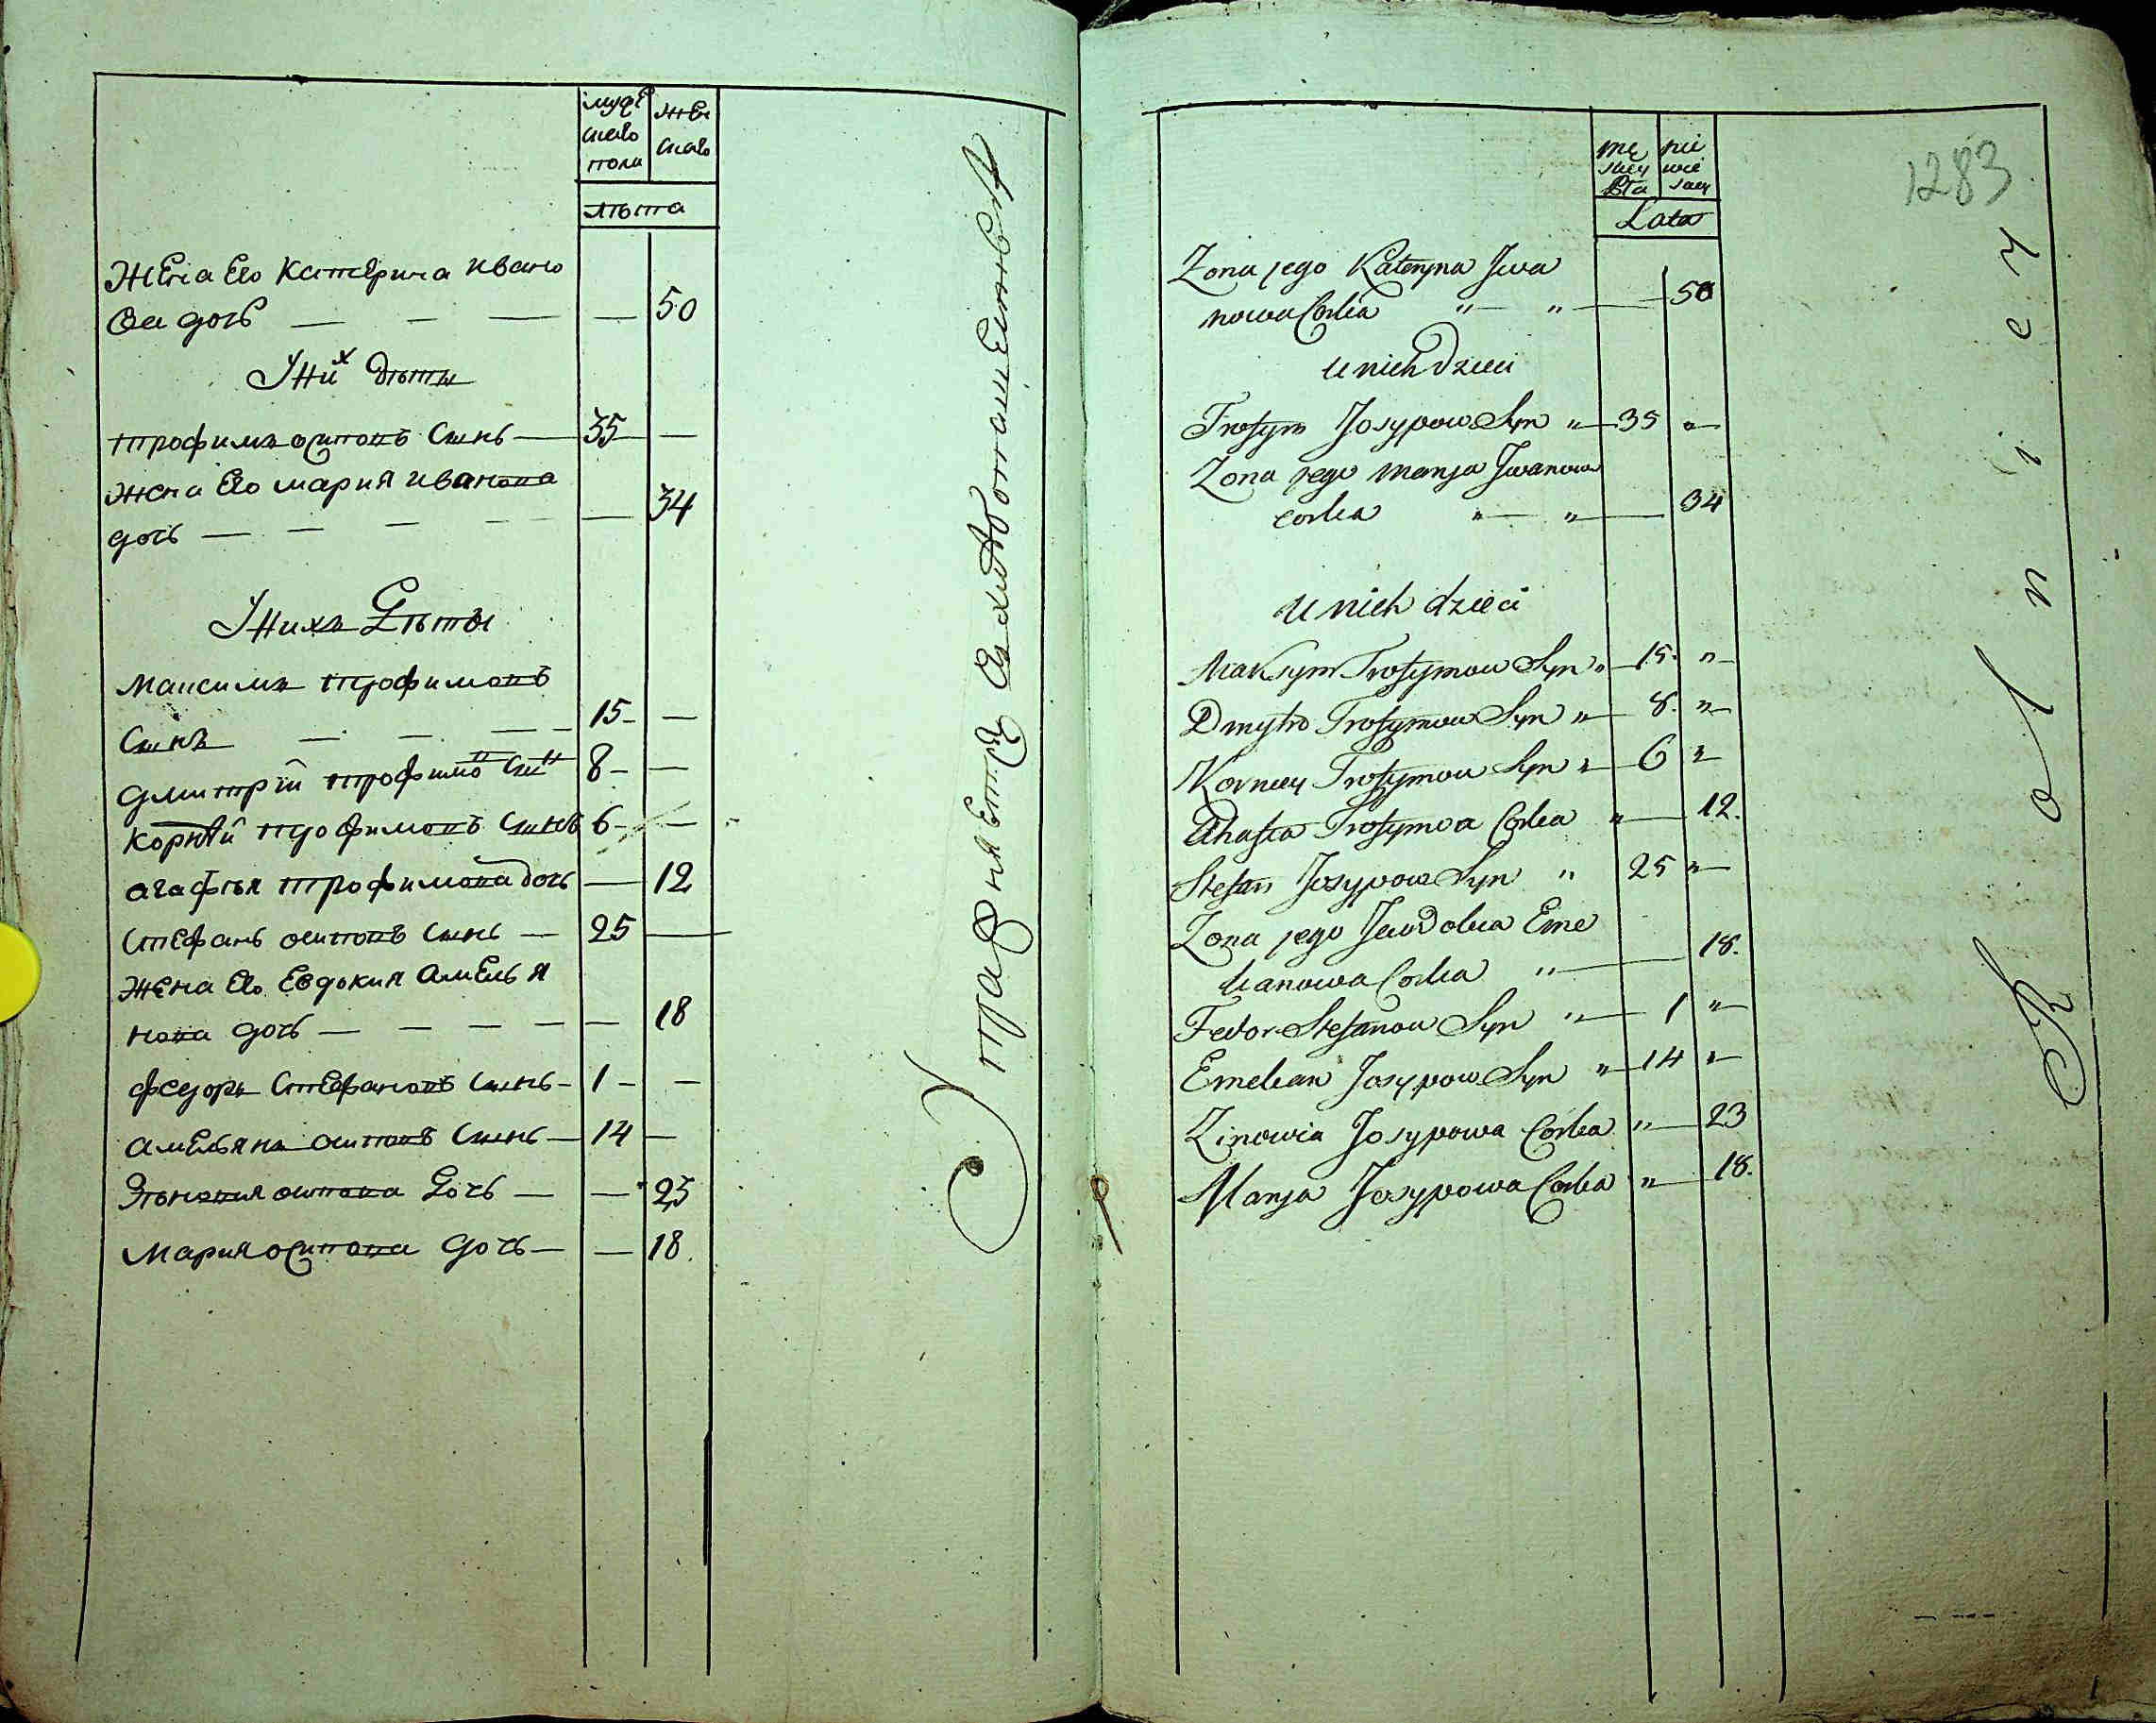 мужескаго пола
женскаго
лѣта
Жена Его Катерина Ивано
ва дочь — — — — 50
У них дѣты
трофимъ осиповъ сынъ — 35 —
жена Его мария иванова
дочь — — — — — 34
У нихъ Дѣты
Максимъ трофимовъ
сынъ — — — 15 — —
дмитрій трофимо сы 8 — —
корнѣй трофимовъ сынъ 6 — —
агафья трофимова дочь — 12
стефанъ осиповъ сынъ — 25 —
Жена Его Евдокия амелья
нова дочь — — — — — 18
федоръ стефановъ сынъ — 1 — —
амельянъ осиповъ сынъ — 14 —
Зѣновия осипова дочь — — 23
Мария осипова дочь — — 18.
męskiey płci
niewieściey
Lata
1283
Zona jego Kateryna Jwa
nowa Corka " — " — 50
u nich Dzieci
Trofym Josypow Syn " — 35 " —
Zona jego Marya Jwanowa
corka " — " — 34
U nich dzieci
Maksym Trofymow Syn " — 15. " —
Dmytro Trofymow Syn " — 8. " —
Korniey Trofymow Syn " — 6 " —
Ahafia Trofymowa Corka " — 12.
Stefan Josypow Syn " 25 " —
Zona jego Jewdokia Eme
lianowa Corka " — 18.
Fedor Stefanow Syn " — 1 " —
Emelian Josypow Syn " — 14 " —
Zinowia Josypowa Corka " — 23
Marya Josypowa Corka " — 18.